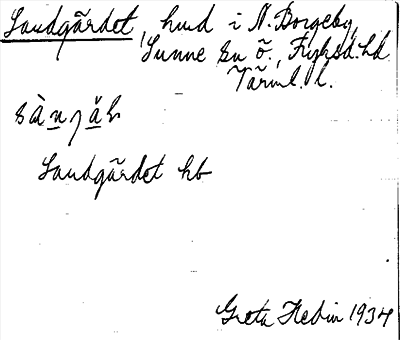 Sandgärdet, hmd i N. Borgeby,
Sunne sn ö., Fryksd. hd
Värml. l.
sàn_jäḷ
Sandgärdet hb
Greta Hedin 1934